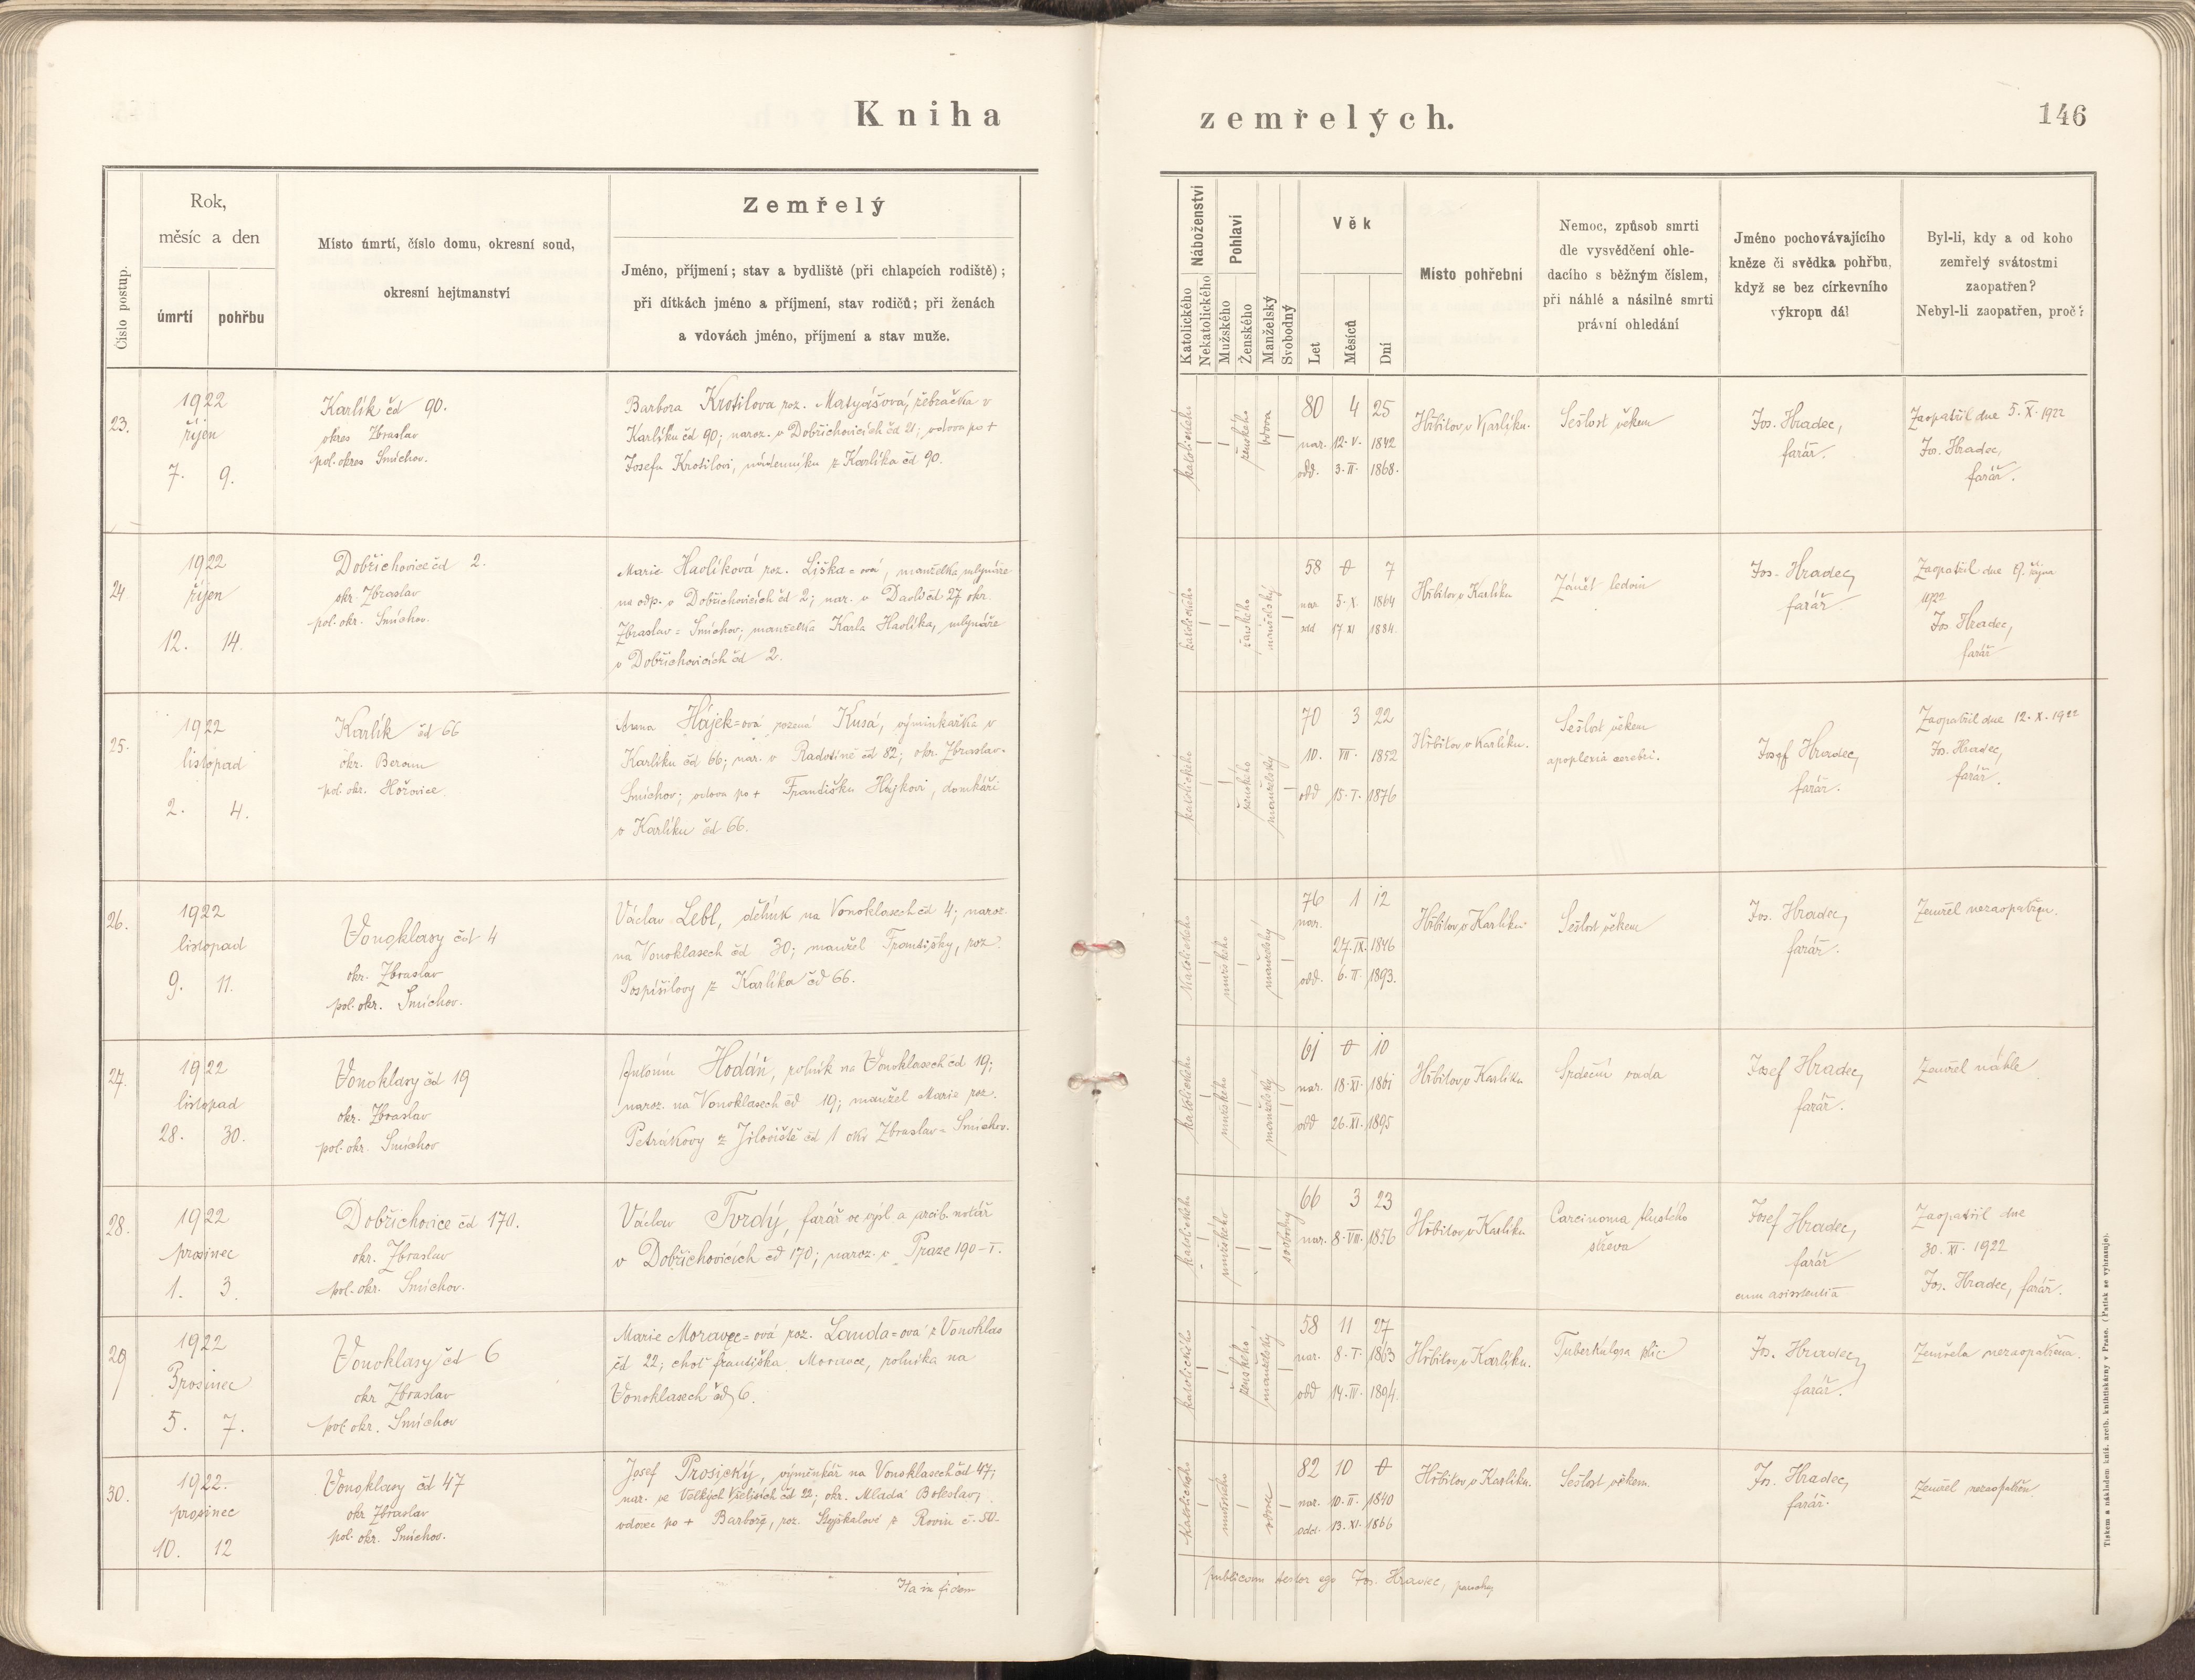 Kniha zemřelých.
146
Číslo postup.
Rok,
měsíc a den
úmrtí
pohřbu
Místo úmrtí, číslo domu, okresní soud,
okresní hejtmanství
Zemřelý
Jméno, příjmení; stav a bydliště (při chlapcích rodiště);
při dítkách jméno a příjmení, stav rodičů; při ženách
a vdovách jméno, příjmení a stav muže.
Náboženství
Katolického
Nekatolického
Pohlaví
Mužského
Ženského
Manželský
Svobodný
Věk
Let
Měsíců
Dní
Místo pohřební
Nemoc, způsob smrti
dle vysvědčení ohle-
dacího s běžným číslem,
při náhlé a násilné smrti
právní ohledání
Jméno pochovávajícího
kněze či svědka pohřbu,
když se bez církevního
výkropu dál
Byl-li, kdy a od koho
zemřelý svátostmi
zaopatřen?
Nebyl-li zaopatřen, proč?
23.
1922
říjen
7. 9.
Karlík čd 90.
okres Zbraslav
pol. okres Smíchov.
Barbora Krotilova roz. Matyášová, žebračka v
Karlíku čd 90; naroz. v Dobřichovicích čd 21; vdova po +
Josefu Krotilovi, nádenníku z Karlíka čd 90.
katolického
ženského
vdova
80 4 25
nar. 12. V. 1842
odd. 3. II. 1868.
Hřbitov v Karlíku.
Sešlost věkem
Jos. Hradec,
farář.
Zaopatřil dne 5. X. 1922
Jos. Hradec,
farář.
24.
1922
říjen
12. 14.
Dobřichovice čd 2.
okr. Zbraslav
pol. okr. Smíchov.
Marie Havlíková roz. Liška=ová, manželka mlynáře
na odp. v Dobřichovicích čd 2; nar. v Davli čd 27 okr.
Zbraslav=Smíchov; manželka Karla Havlíka, mlynáře
v Dobřichovicích čd 2.
katolického
ženského
manželský
58 0 7
nar. 5. X. 1864
odd 17 XI 1884.
Hřbitov v Karlíku
Zánět ledvin
Jos. Hradec,
farář.
Zaopatřil dne 9. října
1922
Jos. Hradec,
farář
25.
1922
listopad
2. 4.
Karlík čd 66
okr. Beroun
pol. okr. Hořovice.
Anna Hájek=ová rozená Kusá, výminkařka v
Karlíku čd 66; nar. v Radotíně čd 82; okr. Zbraslav-
Smíchov; vdova po + Františku Hájkovi, domkáři
v Karlíku čd 66.
katolického
ženského
manželský
70 3 22
10. VII. 1852
odd 15. I. 1876
Hřbitov v Karlíku.
Sešlost věkem
apoplexia cerebri.
Josef Hradec,
farář.
Zaopatřil dne 12. X. 1922
Jos. Hradec,
farář.
26.
1922
listopad
9. 11.
Vonoklasy čd 4
okr. Zbraslav
pol. okr. Smíchov.
Václav Lebl, dělník na Vonoklasech čd 4; naroz.
na Vonoklasech čd 30; manžel Františky, roz.
Pospíšilovy z Karlíka čd 66.
Katolického
mužského
manželský
76 1 12
nar.
27. IX. 1846
odd. 6. II. 1893.
Hřbitov v Karlíku
Sešlost věkem
Jos. Hradec,
farář.
Zemřel nezaopatřen.
27.
1922
listopad
28. 30.
Vonoklasy čd 19
okr. Zbraslav
pol. okr. Smíchov
Antonín Hodáň, rolník na Vonoklasech čd 19;
naroz. na Vonoklasech čd 19; manžel Marie roz.
Petrákovy z Jíloviště čd 1 okr Zbraslav-Smíchov.
katolického
mužského
manželský
61 0 10
nar. 18. XI. 1861
odd 26. XI. 1895
Hřbitov v Karlíku
Srdeční vada
Josef Hradec,
farář.
Zemřel náhle
28.
1922
prosinec
1. 3.
Dobřichovice čd 170.
okr. Zbraslav
pol. okr. Smíchov.
Václav Tvrdý, farář ve výsl a arcib. notář
v Dobřichovicích čd 170; naroz. v Praze 190-I.
katolického
mužského
svobodný
66 3 23
nar. 8. VIII. 1856
Hřbitov v Karlíku
Carcinoma tlustého
střeva
Josef Hradec,
farář
cum asisstentia
Zaopatřil dne
30. XI. 1922
Jos. Hradec, farář.
29
1922
Prosinec
5. 7.
Vonoklasy čd 6
okr Zbraslav
pol. okr. Smíchov
Marie Moravec=ová roz. Landa=ová z Vonoklas
čd 22; choť františka Moravce, rolníka na
Vonoklasech čd 6.
katolického
ženského
manželský
58 11 27
nar. 8. I. 1863
odd 14. III. 1894.
Hřbitov v Karlíku.
Tuberkulosa plic
Jos. Hradec,
farář.
Zemřela nezaopatřena.
30.
1922.
prosinec
10. 12
Vonoklasy čd 47
okr Zbraslav
pol. okr. Smíchov.
Josef Prosický, výměnkář na Vonoklasech čd 47;
nar. ve Velkých Všelisích čd 22; okr. Mladá Boleslav;
vdovec po + Barboře, roz. Slyškalové z Rovin č. 50.
Katolického
mužského
vdovec
82 10 0
nar. 10. II. 1840
odd. 13. XI. 1866
Hřbitov v Karlíku.
Sešlost věkem.
Jos. Hradec,
farář.
Zemřel nezaopatřen
Ita in fidem
publicam testor ego Jos. Hradec, parochus
Tiskem a nákladem kníž. arcib. knihtiskárny v Praze. (Patisk se vyhrazuje).